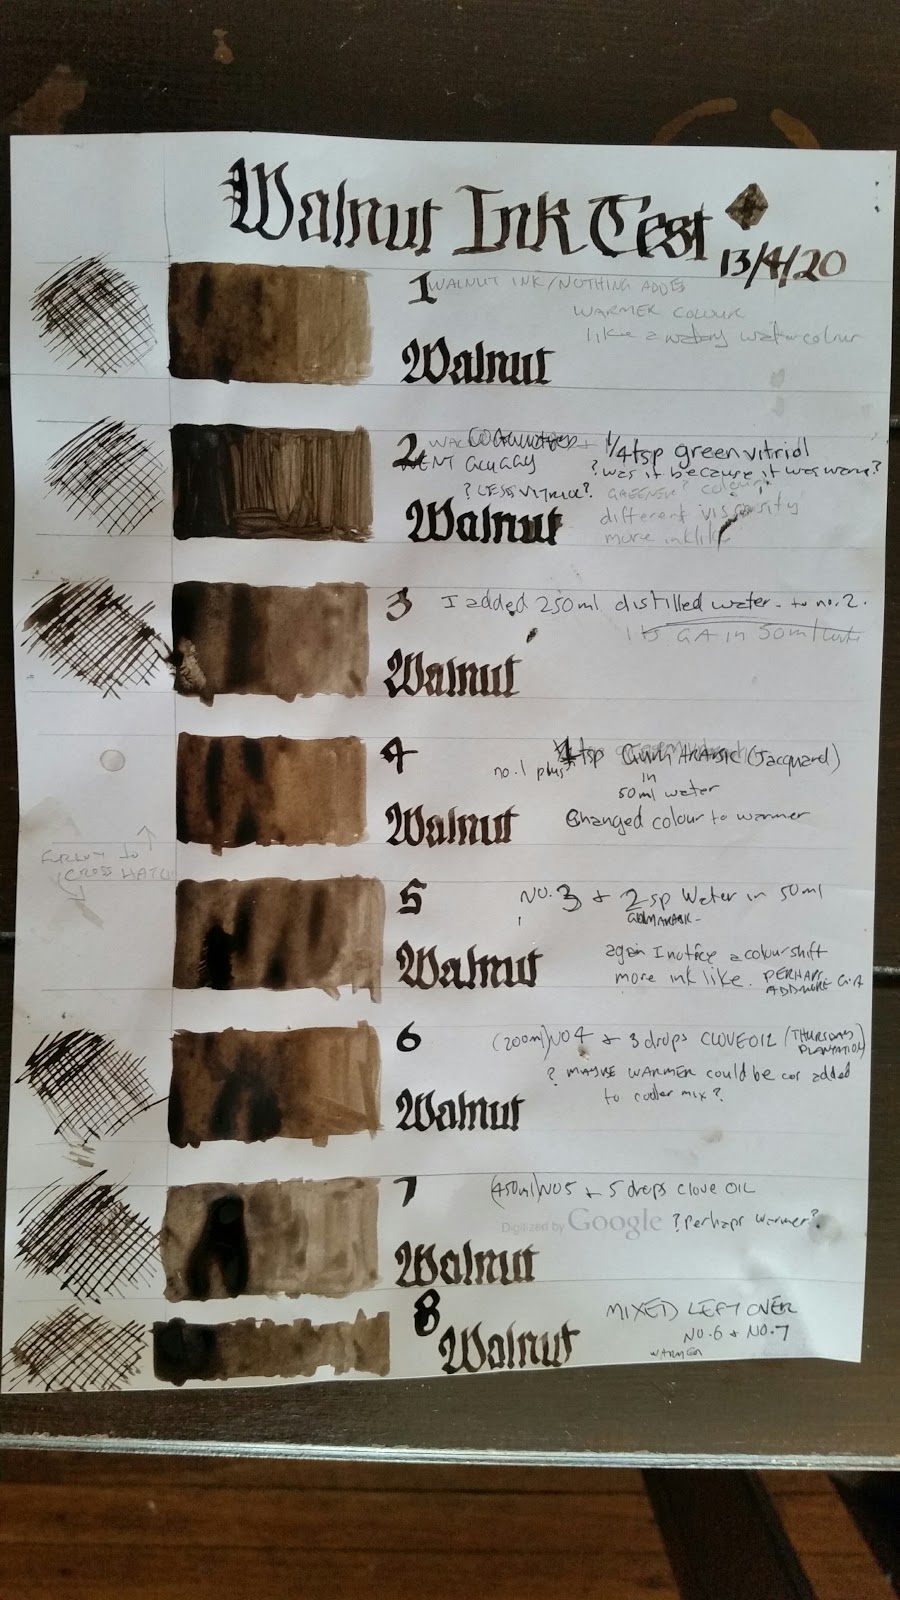 Walnut Ink Test
13/4/20
1 WALNUT INK/NOTHING ADDED
WARMER COLOUR
like a watery watercolour
Walnut
2 1/4 tsp green vitriol
WENT GLUGGY ? was it because it was warm?
? LESS VITRIOL? GREENER? colour
different viscosity
Walnut
more inklike
3 I added 250ml distilled water. to no.2.
GA in 50ml
Walnut
4 tsp GUM ARABIC (Jacquard)
no.1 plus in
50ml water
Walnut Changed colour to warmer
FORGOT TO
CROSS HATCH
5 NO.3 + 2sp Water in 50ml
GUM ARABIC
again I notice a colour shift
Walnut more ink like. PERHAPS
ADD MORE G.A
6 (200ml) NO4 + 3 drops CLOVE OIL (THURSDAY
PLANTATION)
? MAYBE WARMER could be cos added
to cooler mix?
Walnut
7 (450ml) NO5 + 5 drops Clove OIL
Digitized by Google ?Perhaps warmer?
Walnut
8 MIXED LEFT OVER
NO.6 + NO.7
Walnut WARMER